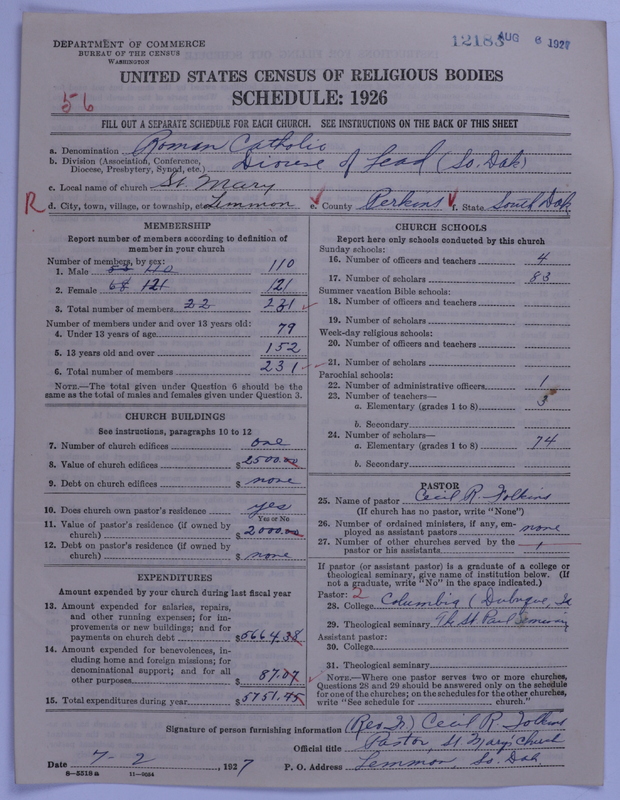 DEPARTMENT OF COMMERCE
BUREAU OF THE CENSUS
WASHINGTON
12183 AUG 6 1927
UNITED STATES CENSUS OF RELIGIOUS BODIES
SCHEDULE: 1926
56
FILL OUT A SEPARATE SCHEDULE FOR EACH CHURCH. SEE INSTRUCTIONS ON THE BACK OF THIS SHEET
a. Denomination Roman Catholic
b. Division (Association, Conference, Diocese, Presbytery, Synod, etc.) Diocese of Lead (So. Dak)
c. Local name of church St. Mary
R d. City, town, village, or township, etc. Lemmon e. County Perkins f. State South Dak
MEMBERSHIP
Report number of members according to definition of
member in your church
Number of members, by sex:
1. Male 110 110
2. Female 68 121 121
3. Total number of members 22 231
Number of members under and over 13 years old:
4. Under 13 years of age 79
5. 13 years old and over 152
6. Total number of members 231
NOTE.—The total given under Question 6 should be the
same as the total of males and females given under Question 3.
CHURCH BUILDINGS
See instructions, paragraphs 10 to 12
7. Number of church edifices one
8. Value of church edifices $ 2500.00
9. Debt on church edifices $ none
10. Does church own pastor's residence yes
Yes or No
11. Value of pastor's residence (if owned by
church) $ 2000.00
12. Debt on pastor's residence (if owned by
church) $ none
EXPENDITURES
Amount expended by your church during last fiscal year
13. Amount expended for salaries, repairs,
and other running expenses; for im-
provements or new buildings; and for
payments on church debt $ 5664.38
14. Amount expended for benevolences, in-
cluding home and foreign missions; for
denominational support; and for all
other purposes $ 87.07
15. Total expenditures during year $ 5751.45
CHURCH SCHOOLS
Report here only schools conducted by this church
Sunday schools:
16. Number of officers and teachers 4
17. Number of scholars 83
Summer vacation Bible schools:
18. Number of officers and teachers
19. Number of scholars
Week-day religious schools:
20. Number of officers and teachers
21. Number of scholars
Parochial schools:
22. Number of administrative officers 1
23. Number of teachers—
a. Elementary (grades 1 to 8) 3
b. Secondary
24. Number of scholars—
a. Elementary (grades 1 to 8) 74
b. Secondary
PASTOR
25. Name of pastor Cecil R. Tolkins
(If church has no pastor, write "None")
26. Number of ordained ministers, if any, em-
ployed as assistant pastors none
27. Number of other churches served by the
pastor or his assistants 1
If pastor (or assistant pastor) is a graduate of a college or
theological seminary, give name of institution below. (If
not a graduate, write "No" in the space indicated.)
Pastor: 2
28. College Columbia (Dubuque, Ia
29. Theological seminary The St Paul Seminary
Assistant pastor:
30. College
31. Theological seminary
NOTE.—Where one pastor serves two or more churches,
Questions 28 and 29 should be answered only on the schedule
for one of the churches; on the schedules for the other churches,
write "See schedule for church."
Signature of person furnishing information (Rev. Fr.) Cecil R. Tolkins
Official title Pastor, St Mary's Church
Date 7-2, 1927 P. O. Address Lemmon, So. Dak
8-5518a 11-9064